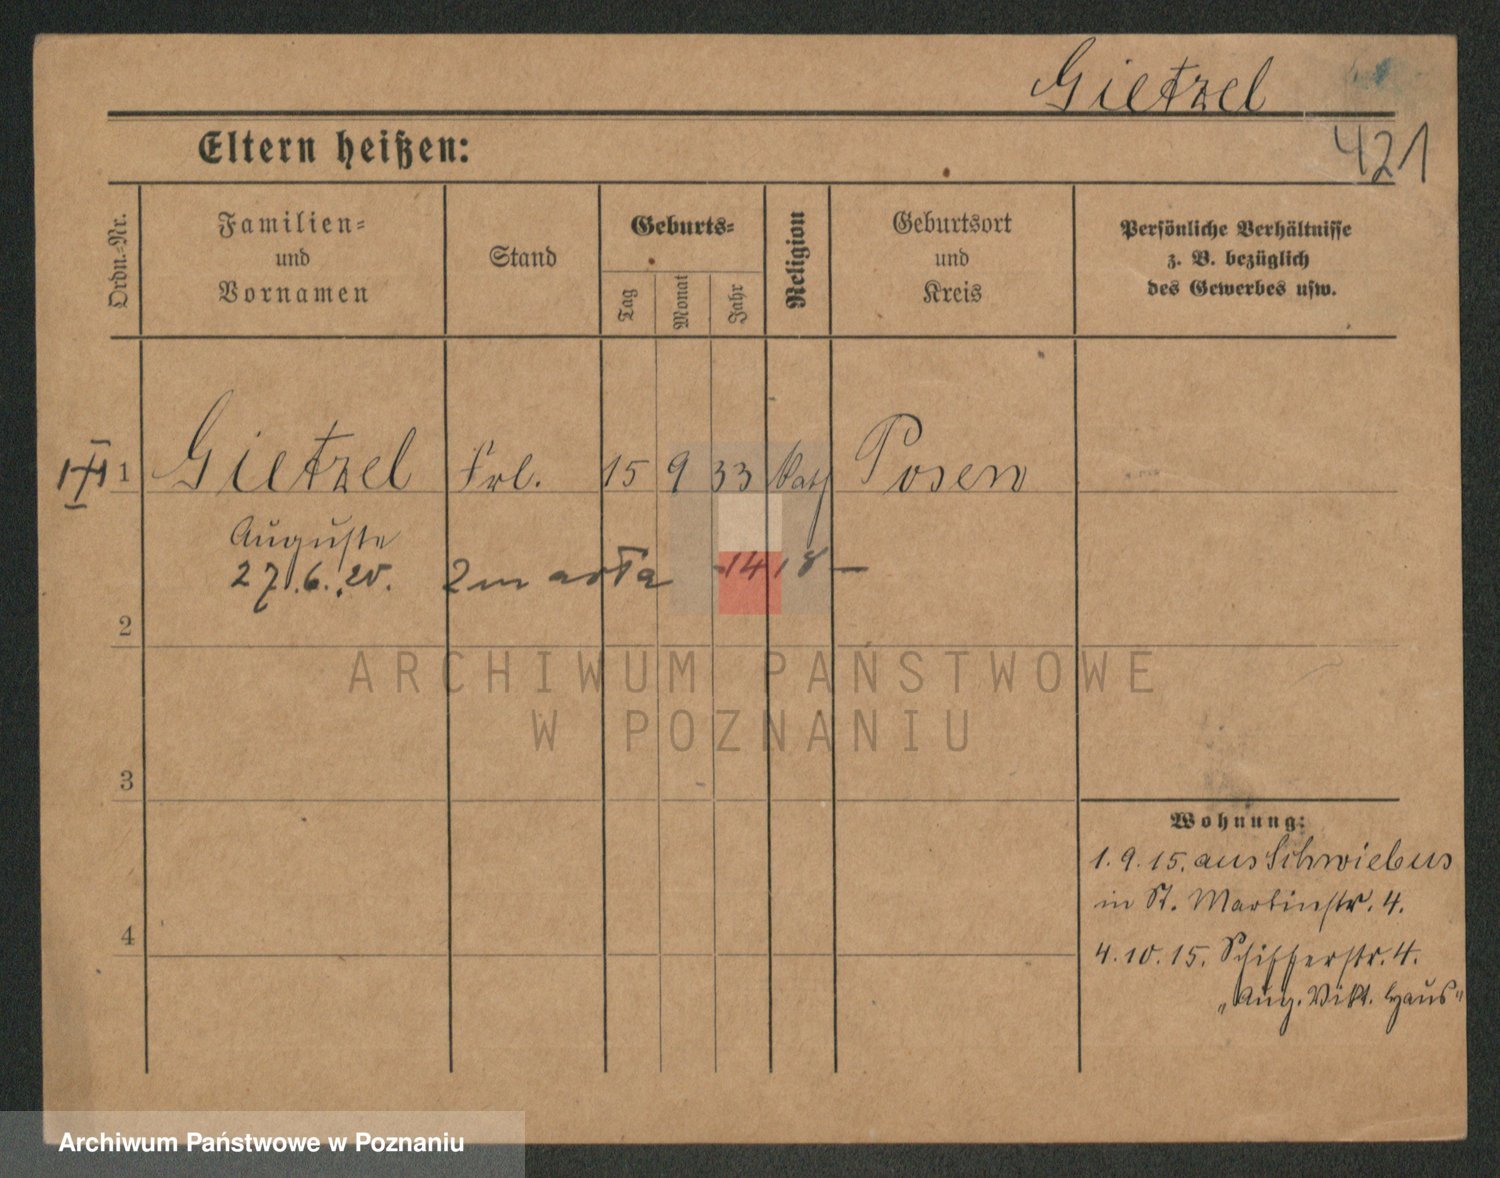 Gietzel
421
Eltern heißen:
Ordn.-Nr.
Familien-
und
Vornamen
Stand
Geburts-
Tag
Monat
Jahr
Religion
Geburtsort
und
Kreis
Persönliche Verhältnisse
z. B. bezüglich
des Gewerbes usw.
1 Gietzel Frl. 15 9 33 Kath Posen
Auguste
27.6.20. Zmarła 1418
2
ARCHIWUM PAŃSTWOWE
W POZNANIU
3
Wohnung:
1.9.15. aus Schwiebus
in St. Martinstr. 4.
4
4.10.15. Schifferstr. 4.
"Aug. Vikt. Haus"
Archiwum Państwowe w Poznaniu